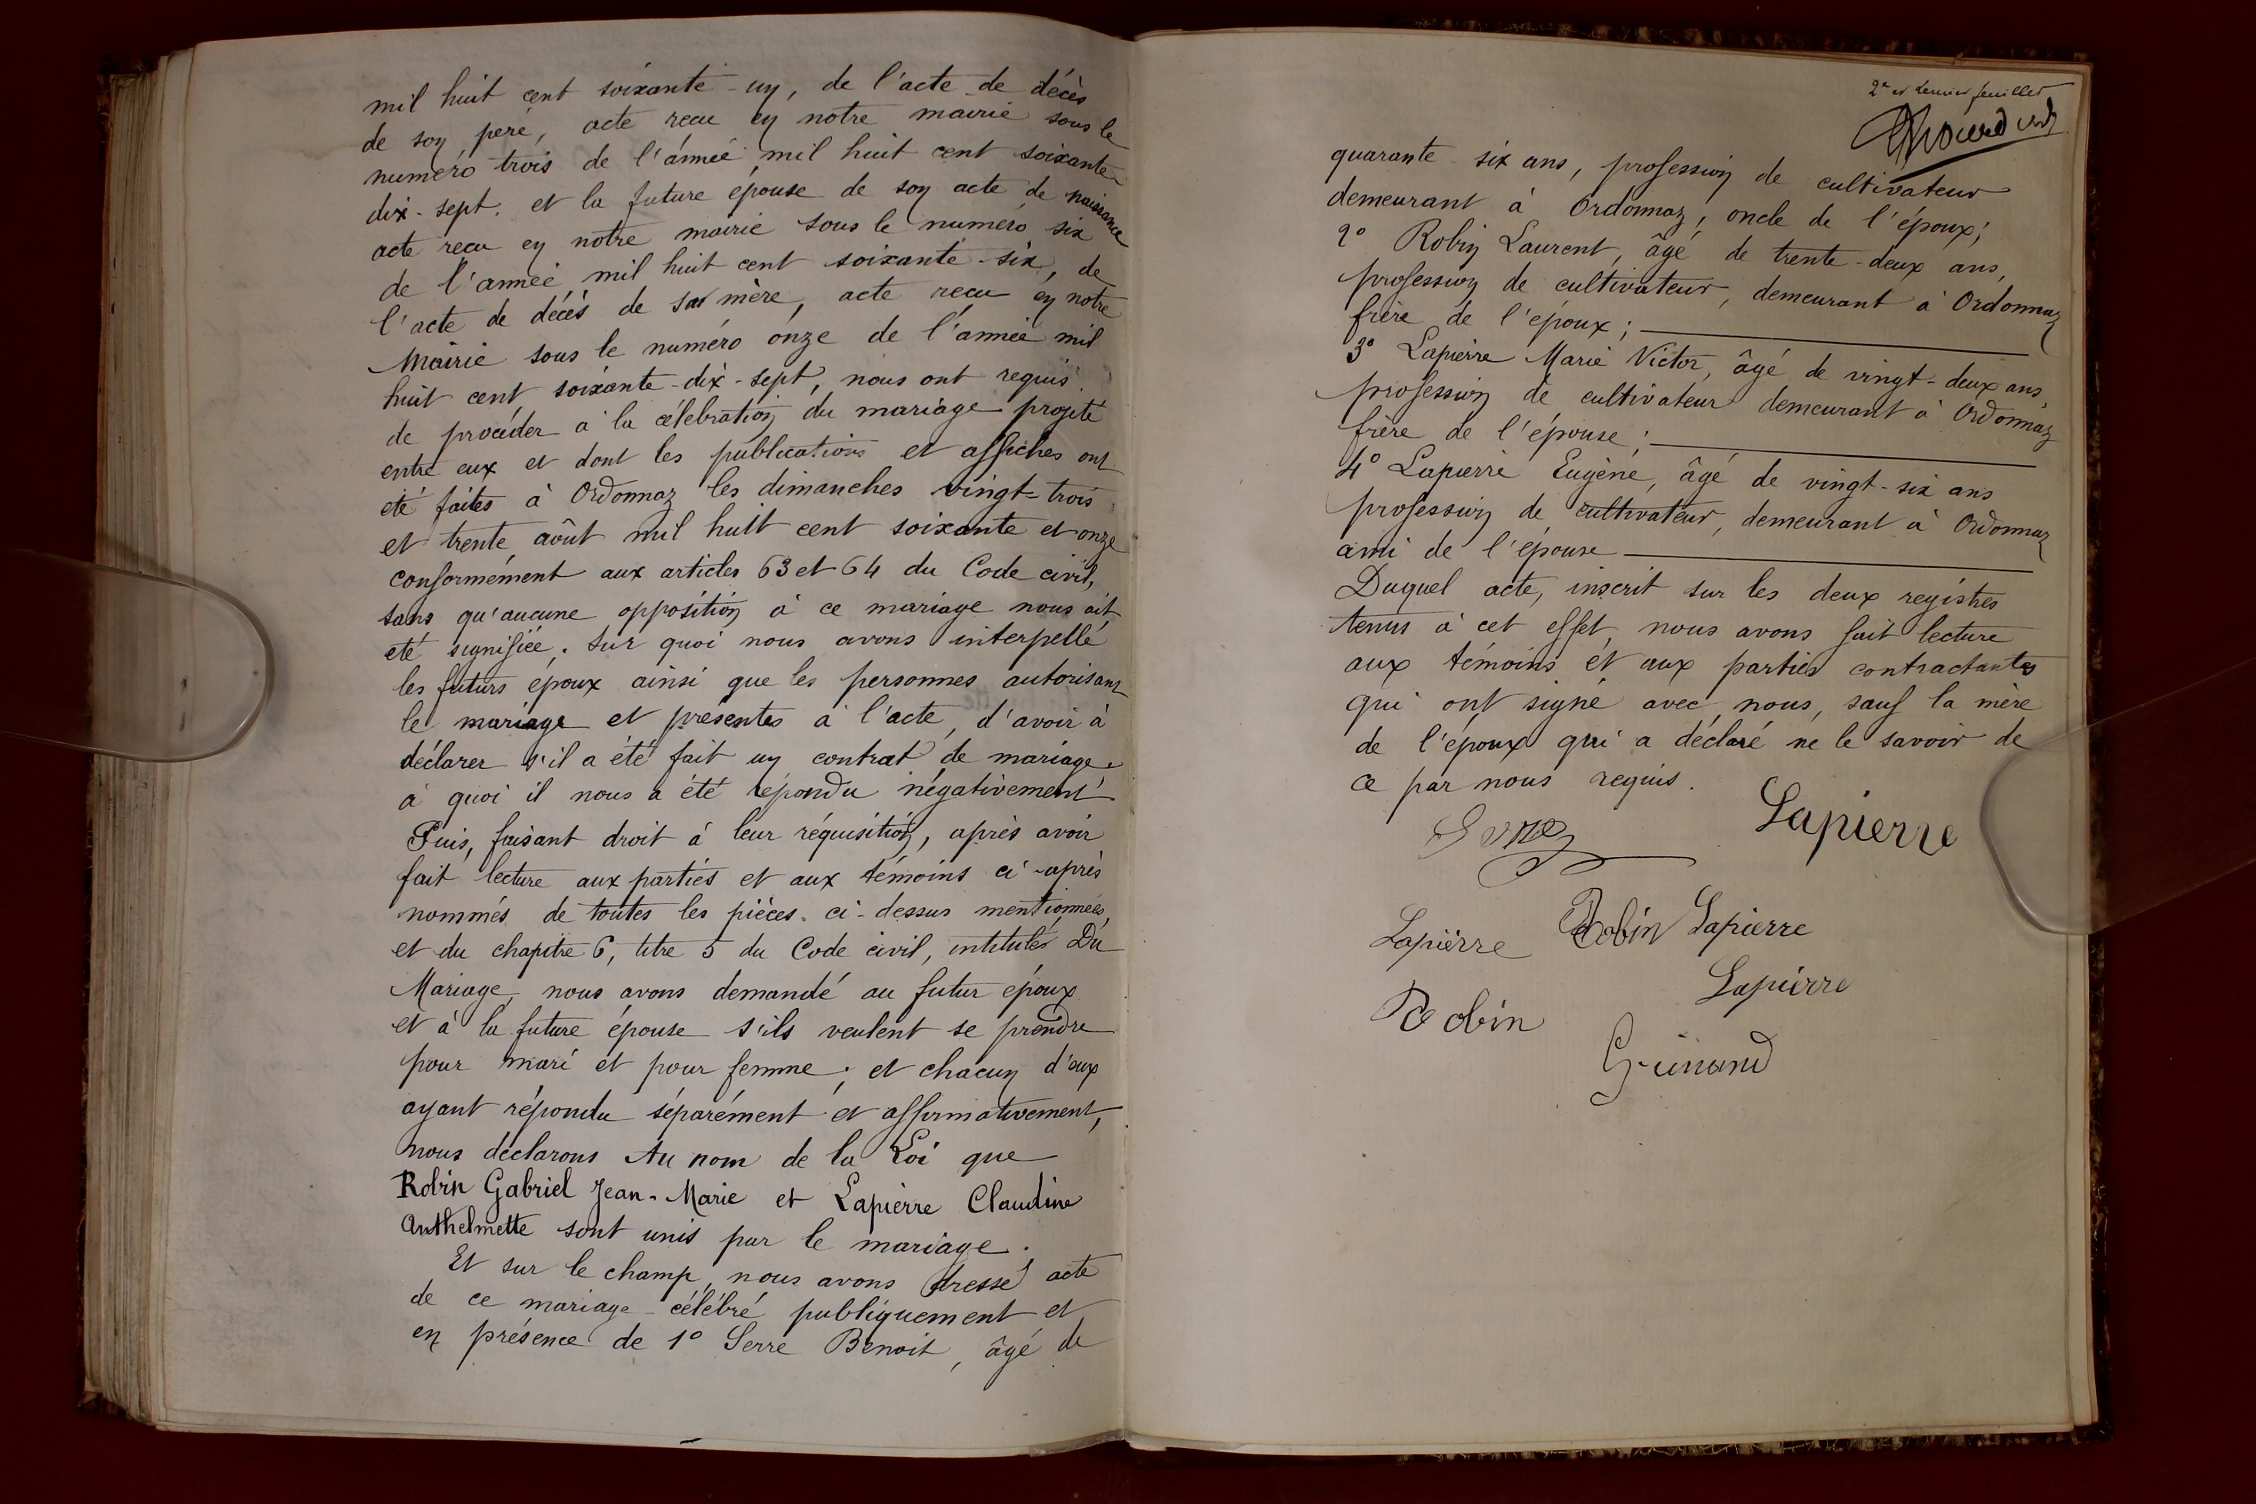 mil huit cent soixante-un, de l'acte de décès
de son père, acte recu en notre mairie sous le
numéro trois de l'année mil huit cent soixante
dix-sept. et la future épouse de son acte de naissance
acte recu en notre mairie sous le numéro six
de l'année mil huit cent soixante-six, de
l'acte de décès de sa mère, acte recu en notre
Mairie sous le numéro onze de l'année mil
huit cent soixante-dix-sept, nous ont requis
de procéder à la célebration du mariage projeté
entre eux et dont les publications et affiches ont
été faites à Ordonnaz les dimanches vingt-trois
et trente août mil huit cent soixante et onze
conformément aux articles 63 et 64 du Code civil,
sans qu'aucune opposition à ce mariage nous ait
été signifiée. Sur quoi nous avons interpellé
les futurs époux ainsi que les personnes autorisant
le mariage et présentes à l'acte, d'avoir à
déclarer s'il a été fait un contrat de mariage.
à quoi il nous a été répondu négativement
Puis, faisant droit à leur réquisition, après avoir
fait lecture aux parties et aux témoins ci-après
nommés de toutes les pièces ci-dessus mentionnées,
et du chapitre 6, titre 5 du Code civil, intitulés Du
Mariage, nous avons demandé au futur époux
et à la future épouse s'ils veulent se prendre
pour mari et pour femme; et chacun d'eux
ayant répondu séparément et affirmativement,
nous déclarons Au nom de la Loi que
Robin Gabriel Jean-Marie et Lapierre Claudine
Anthelmette sont unis par le mariage.
Et sur le champ, nous avons dressé acte
de ce mariage célébré publiquement et
en présence de 1° Serre Benoit, âgé de
2e et dernier feuillet
quarante-six ans, profession de cultivateur
demeurant à Ordonnaz, oncle de l'époux;
2° Robin Laurent, âgé de trente-deux ans,
profession de cultivateur, demeurant à Ordonnaz
frère de l'époux;
3° Lapierre Marie Victor, âgé de vingt-deux ans,
profession de cultivateur demeurant à Ordonnaz
frère de l'épouse;
4° Lapierre Eugène, âgé de vingt-six ans
profession de cultivateur, demeurant à Ordonnaz
ami de l'épouse
Duquel acte, inscrit sur les deux registres
tenus à cet effet, nous avons fait lecture
aux témoins et aux parties contractantes
qui ont signé avec nous, sauf la mère
de l'époux qui a déclaré ne le savoir de
ce par nous requis.
Lapierre
Lapierre Robin Lapierre
Lapierre
Robin